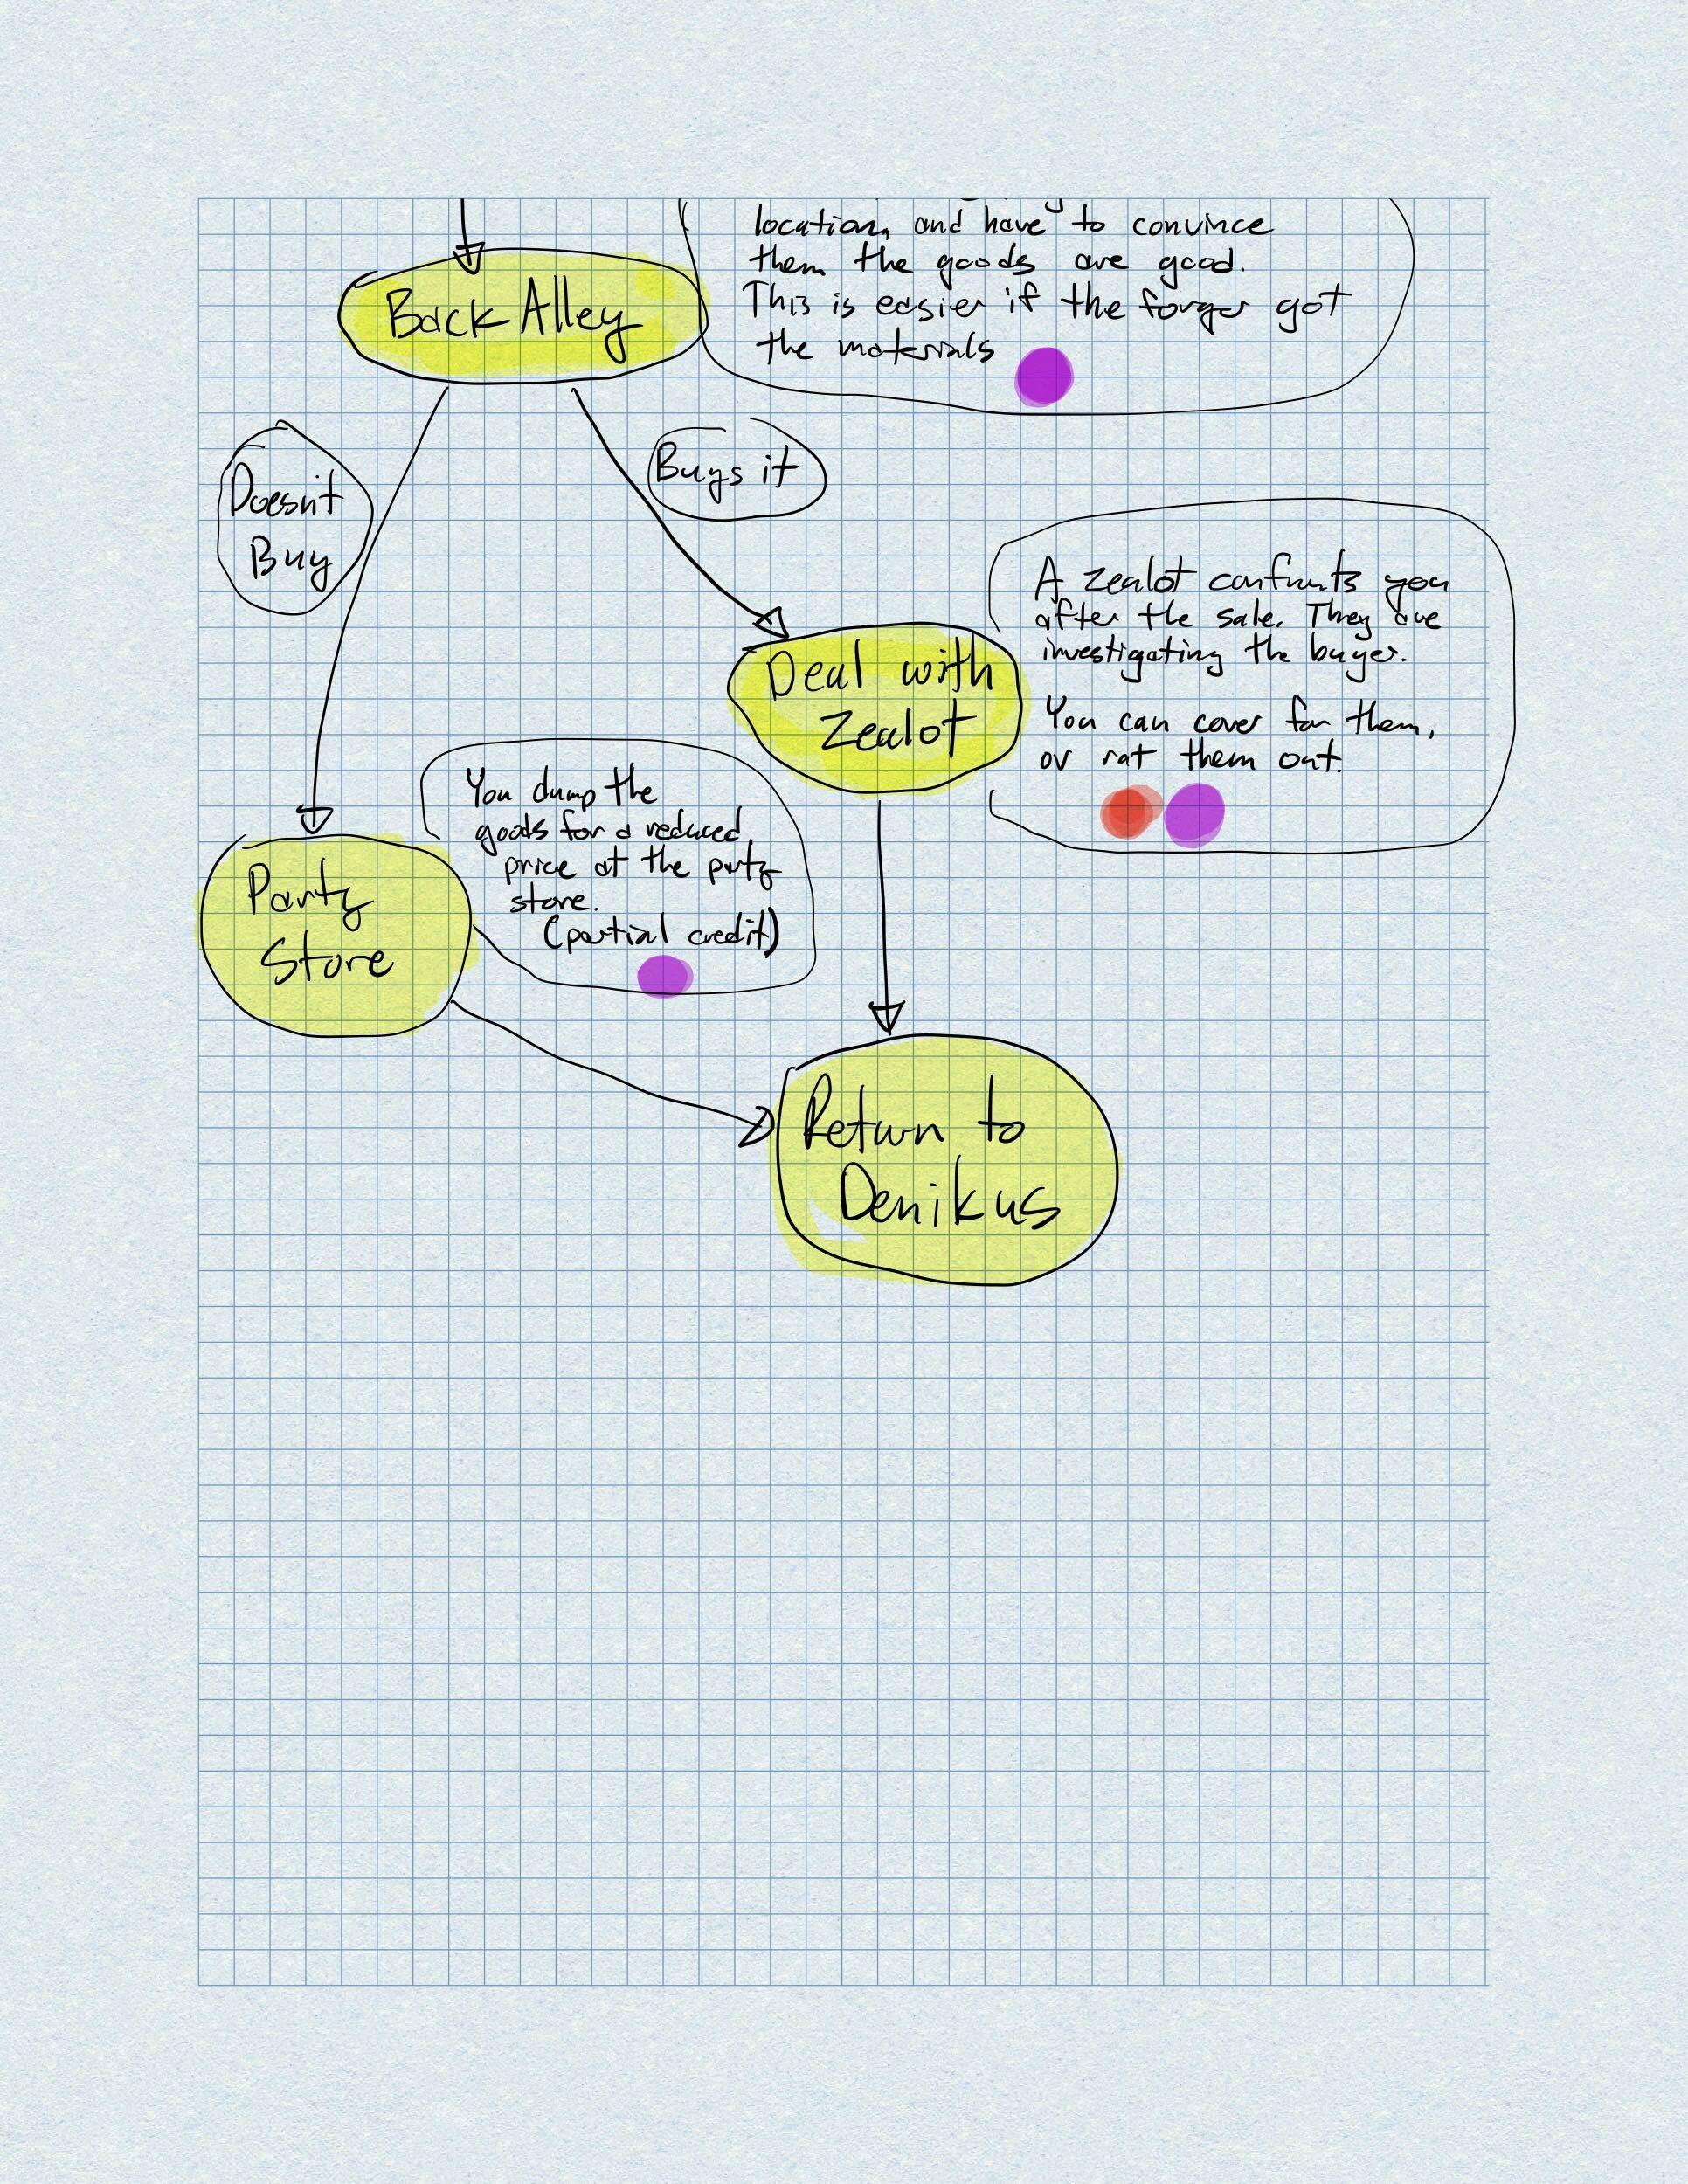 location, and have to convince
them the goods are good.
This is easier if the forger got
the materials
Back Alley
Doesn't
Buy
Buys it
A zealot confronts you
after the sale. They are
investigating the buyer.
You can cover for them,
or rat them out.
Deal with
Zealot
You dump the
goods for a reduced
price at the party
store.
(partial credit)
Party
Store
Return to
Denikus